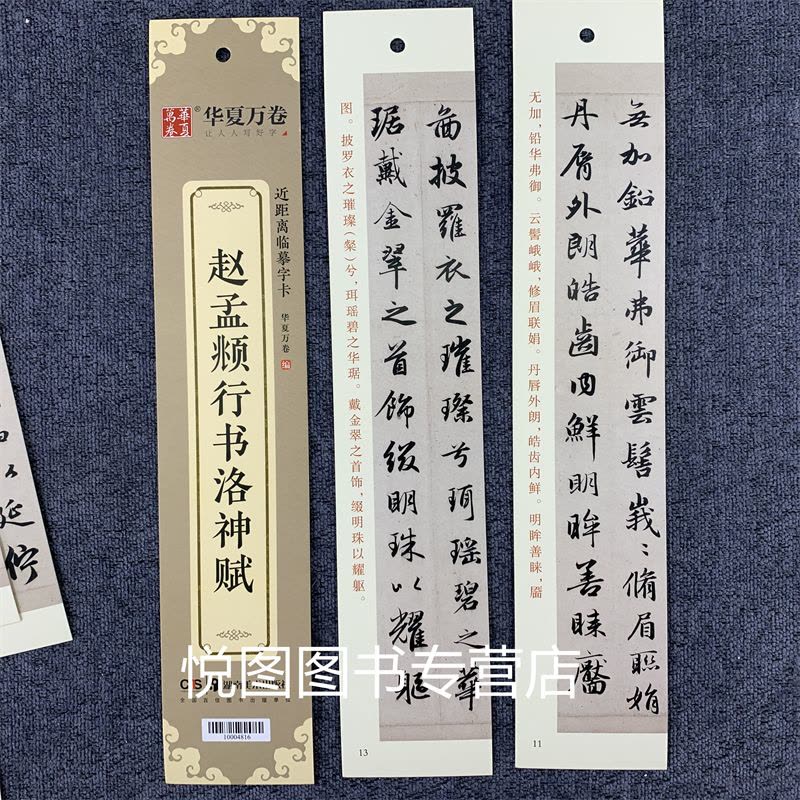 華夏
萬卷
®
华夏万卷
让人人写好字
近距离临摹字卡
华夏万卷 编
赵孟頫行书洛神赋
全国百佳图书出版单位
10004816
图。披罗衣之璀璨（粲）兮，珥瑶碧之华琚。戴金翠之首饰，缀明珠以耀躯。
面披羅衣之璀璨兮珥瑶碧之華
琚戴金翠之首飾缀明珠以耀軀
13
无加，铅华弗御。云髻峨峨，修眉联娟。丹唇外朗，皓齿内鲜。明眸善睐，靥
無加鉛華弗御雲髻峩〻脩眉聯娟
丹脣外朗皓齒内鮮明眸善睐靨
11
延佇
悦图图书专营店